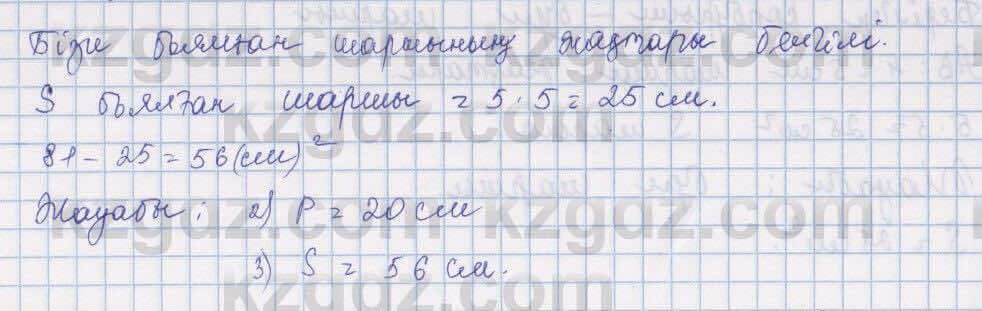 Бізге боялған шаршының жақтары белгілі.
S боялған шаршы = 5 · 5 = 25 см.
81 - 25 = 56 (см)²
Жауабы: 2) P = 20 см
3) S = 56 см.
kzgdz.com